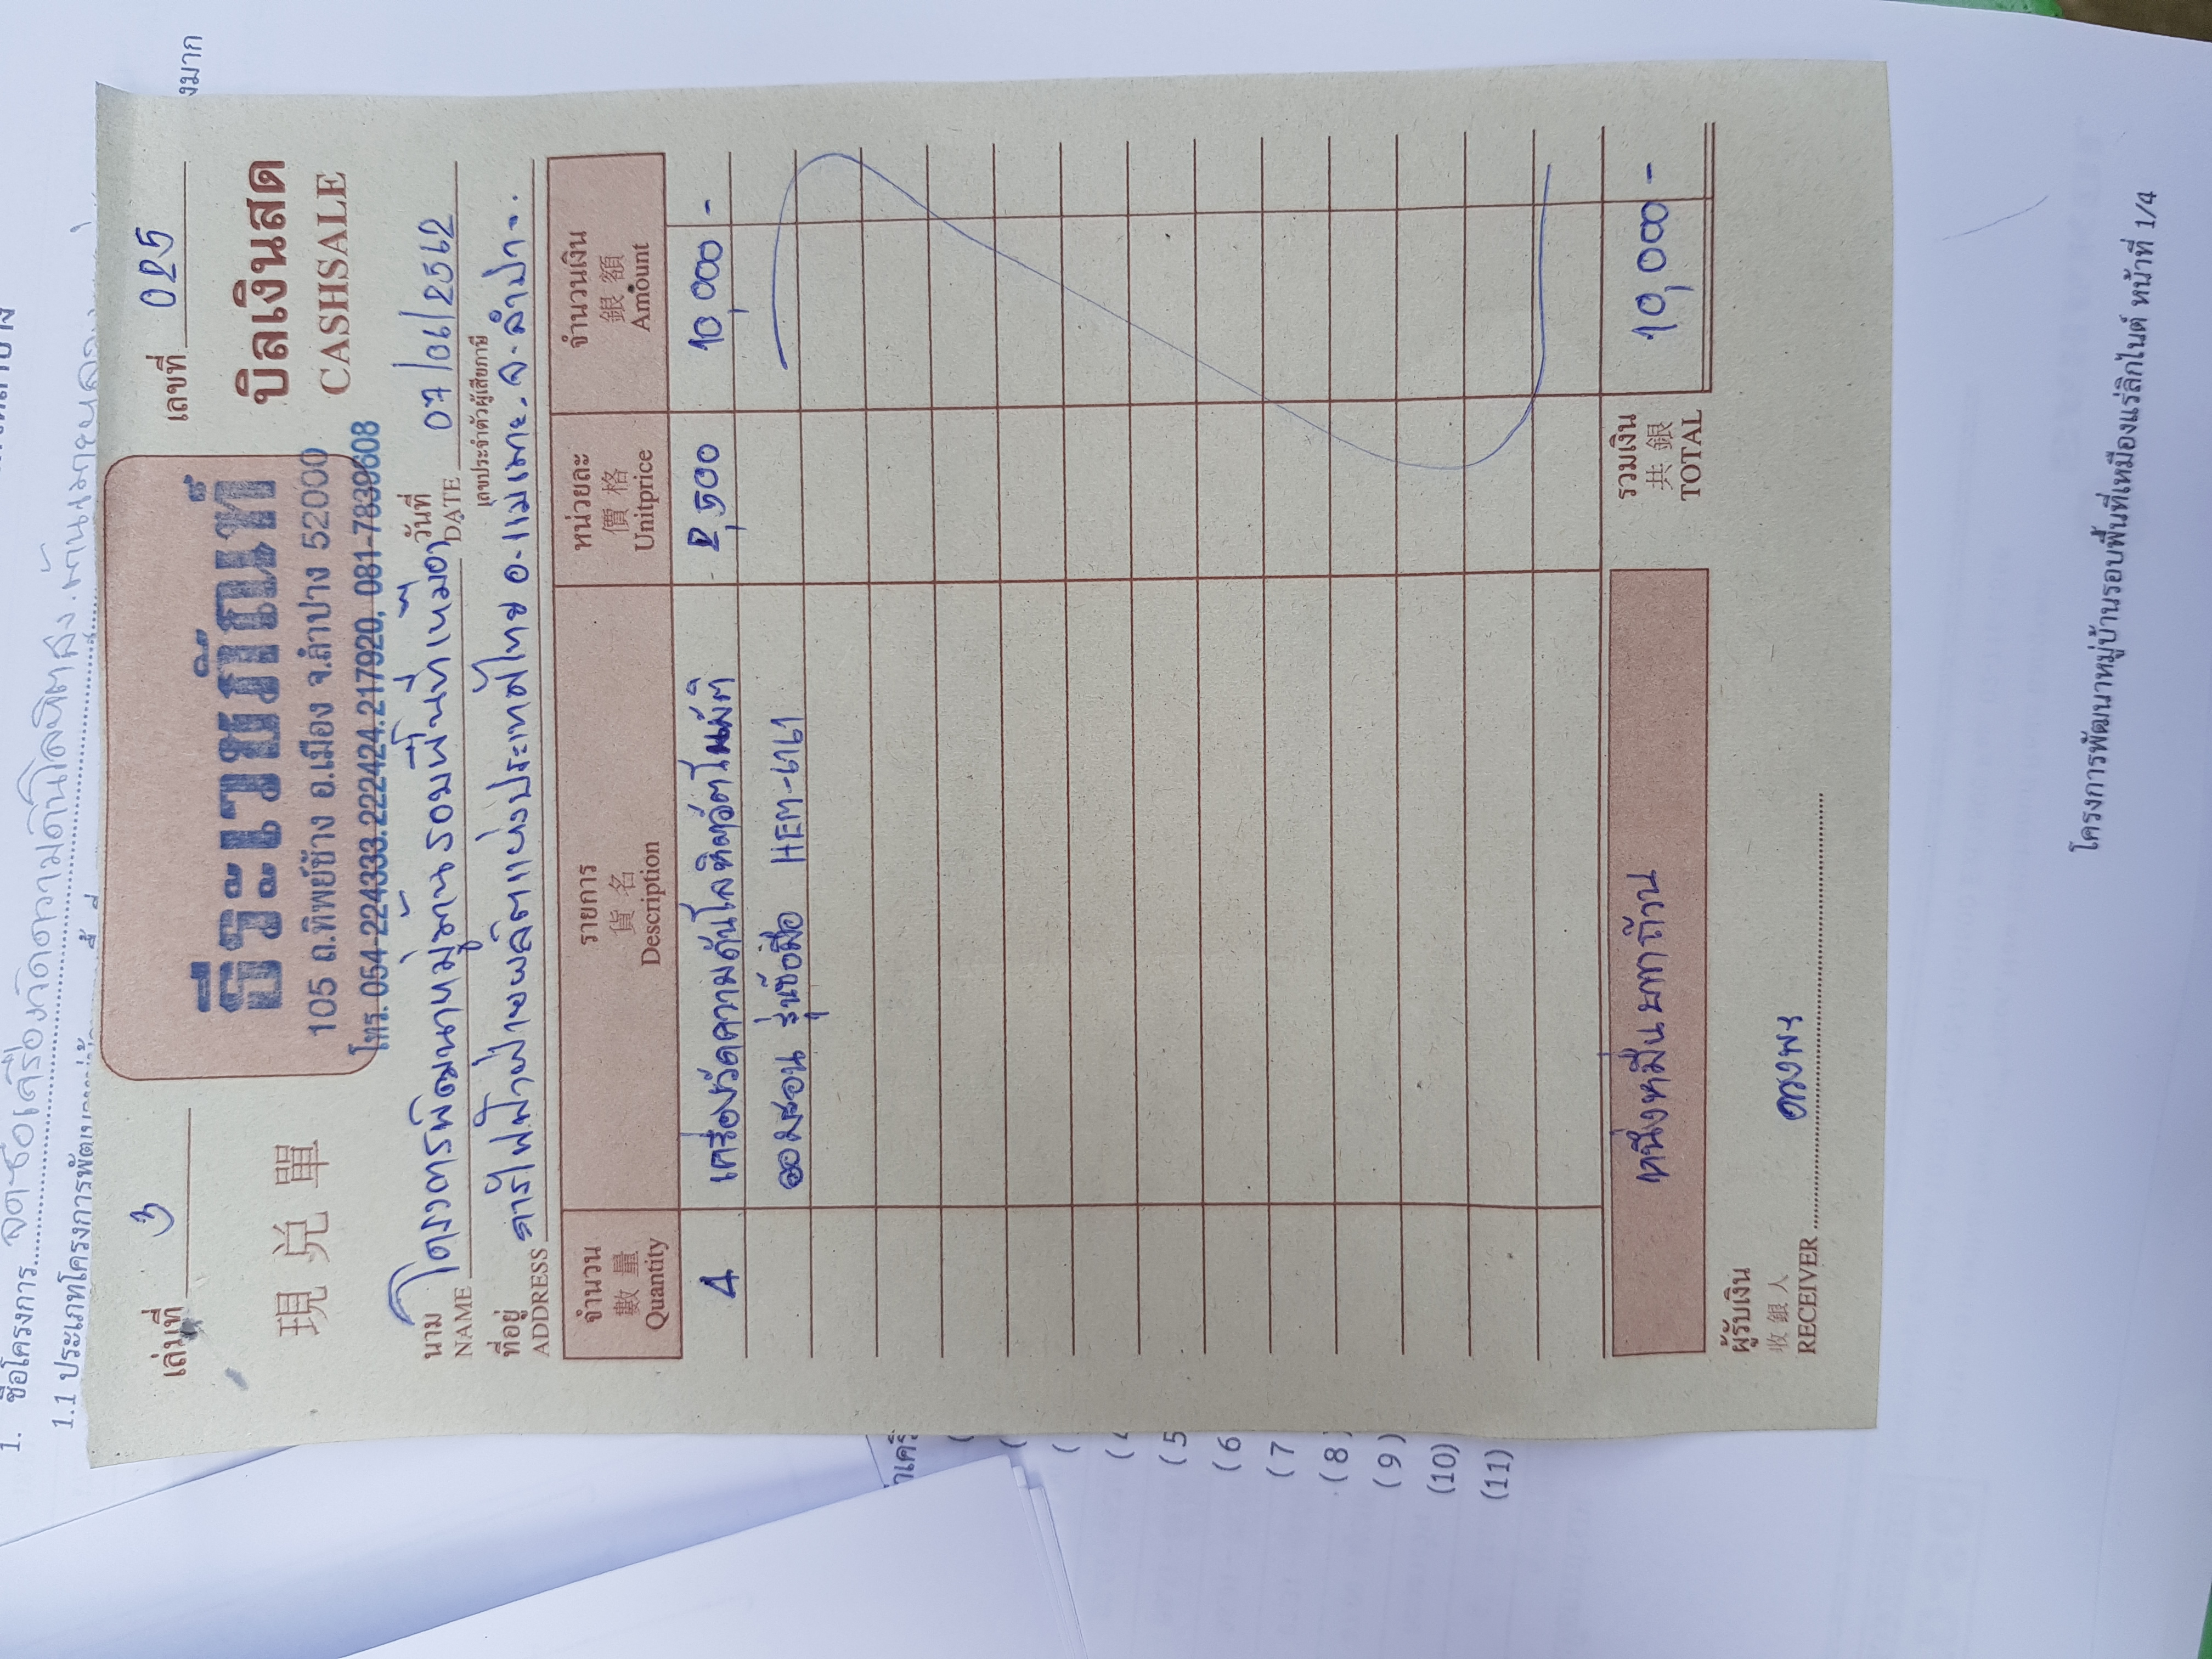 เล่มที่ 3 เลขที่ 025
ธีระเวชภัณฑ์
現兌單 บิลเงินสด
105 ถ.ทิพย์ช้าง อ.เมือง จ.ลำปาง 52000
CASHSALE
โทร. 054-224333.222424.217920, 081-7839608
นาม โครงการพัฒนาหมู่บ้านรอบพื้นที่เหมือง วันที่ 07/06/2562
NAME DATE
ที่อยู่ การไฟฟ้าฝ่ายผลิตแห่งประเทศไทย อ.แม่เมาะ จ.ลำปาง
ADDRESS เลขประจำตัวผู้เสียภาษี
จำนวน รายการ หน่วยละ จำนวนเงิน
數量 貨名 價格 銀額
Quantity Description Unitprice Amount
4 เครื่องวัดความดันโลหิตอัตโนมัติ 2,500 10,000 -
ออมรอน รุ่นข้อมือ HEM-6161
หนึ่งหมื่นบาทถ้วน รวมเงิน 10,000 -
共銀
TOTAL
ผู้รับเงิน
收銀人
RECEIVER
1. ชื่อโครงการ
1.1 ประเภทโครงการพัฒนา
(5
(6
(7
(8)
(9)
(10)
(11)
โครงการพัฒนาหมู่บ้านรอบพื้นที่เหมืองแร่ลิกไนต์ หน้าที่ 1/4